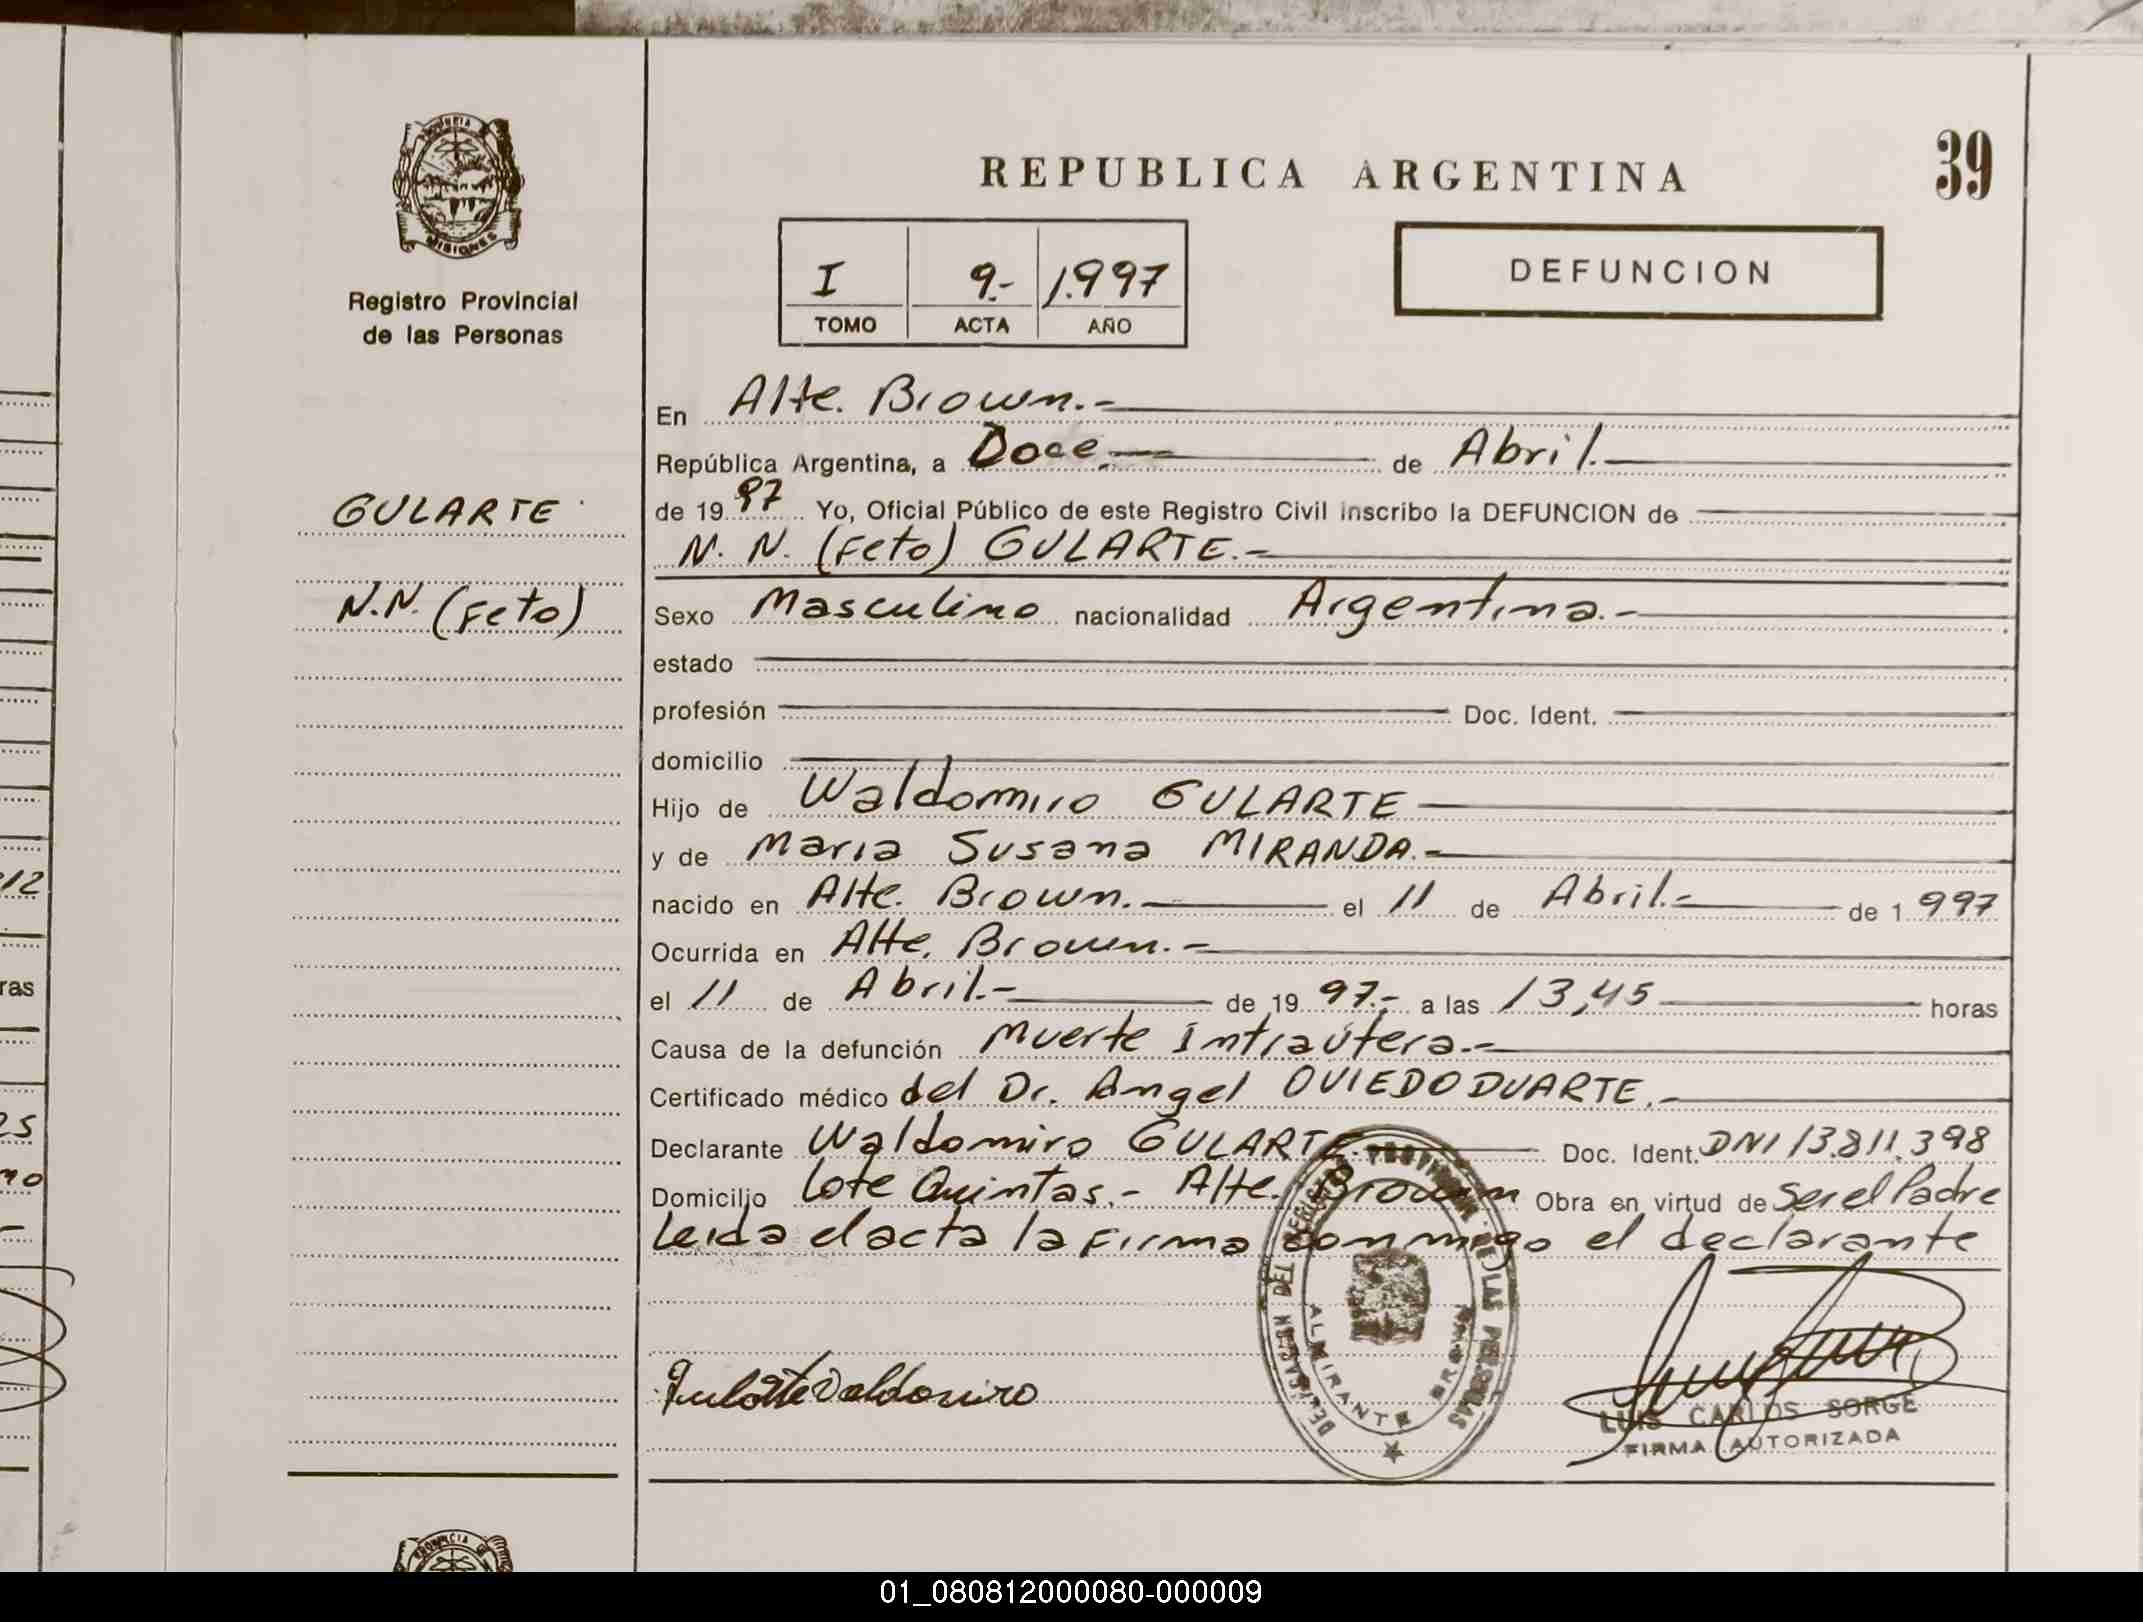 PROVINCIA DE
MISIONES
Registro Provincial
de las Personas
REPUBLICA ARGENTINA
39
I 9.- 1.997
TOMO ACTA AÑO
DEFUNCION
GULARTE
N.N. (Feto)
En Alte. Brown.-
República Argentina, a Doce.- de Abril.-
de 1997 Yo, Oficial Público de este Registro Civil inscribo la DEFUNCION de
N. N. (Feto) GULARTE.-
Sexo Masculino nacionalidad Argentina.-
estado
profesión Doc. Ident.
domicilio
Hijo de Waldomiro GULARTE
y de Maria Susana MIRANDA.-
nacido en Alte. Brown. el 11 de Abril.- de 1997
Ocurrida en Alte. Brown.-
el 11 de Abril.- de 1997.- a las 13,45 horas
Causa de la defunción Muerte Intraútera.-
Certificado médico del Dr. Angel OVIEDO DUARTE.-
Declarante Waldomiro GULARTE.- Doc. Ident. DNI 13.811.398
Domicilio Lote Quintas.- Alte. Brown Obra en virtud de Ser el Padre
Leida el acta la Firma conmigo el declarante
DELEGACION DEL REGISTRO PROVINCIAL DE LAS PERSONAS
ALMIRANTE BROWN
Gularte Valdomiro
LUIS CARLOS SORGE
FIRMA AUTORIZADA
12
ras
PROVINCIA DE
01_080812000080-000009